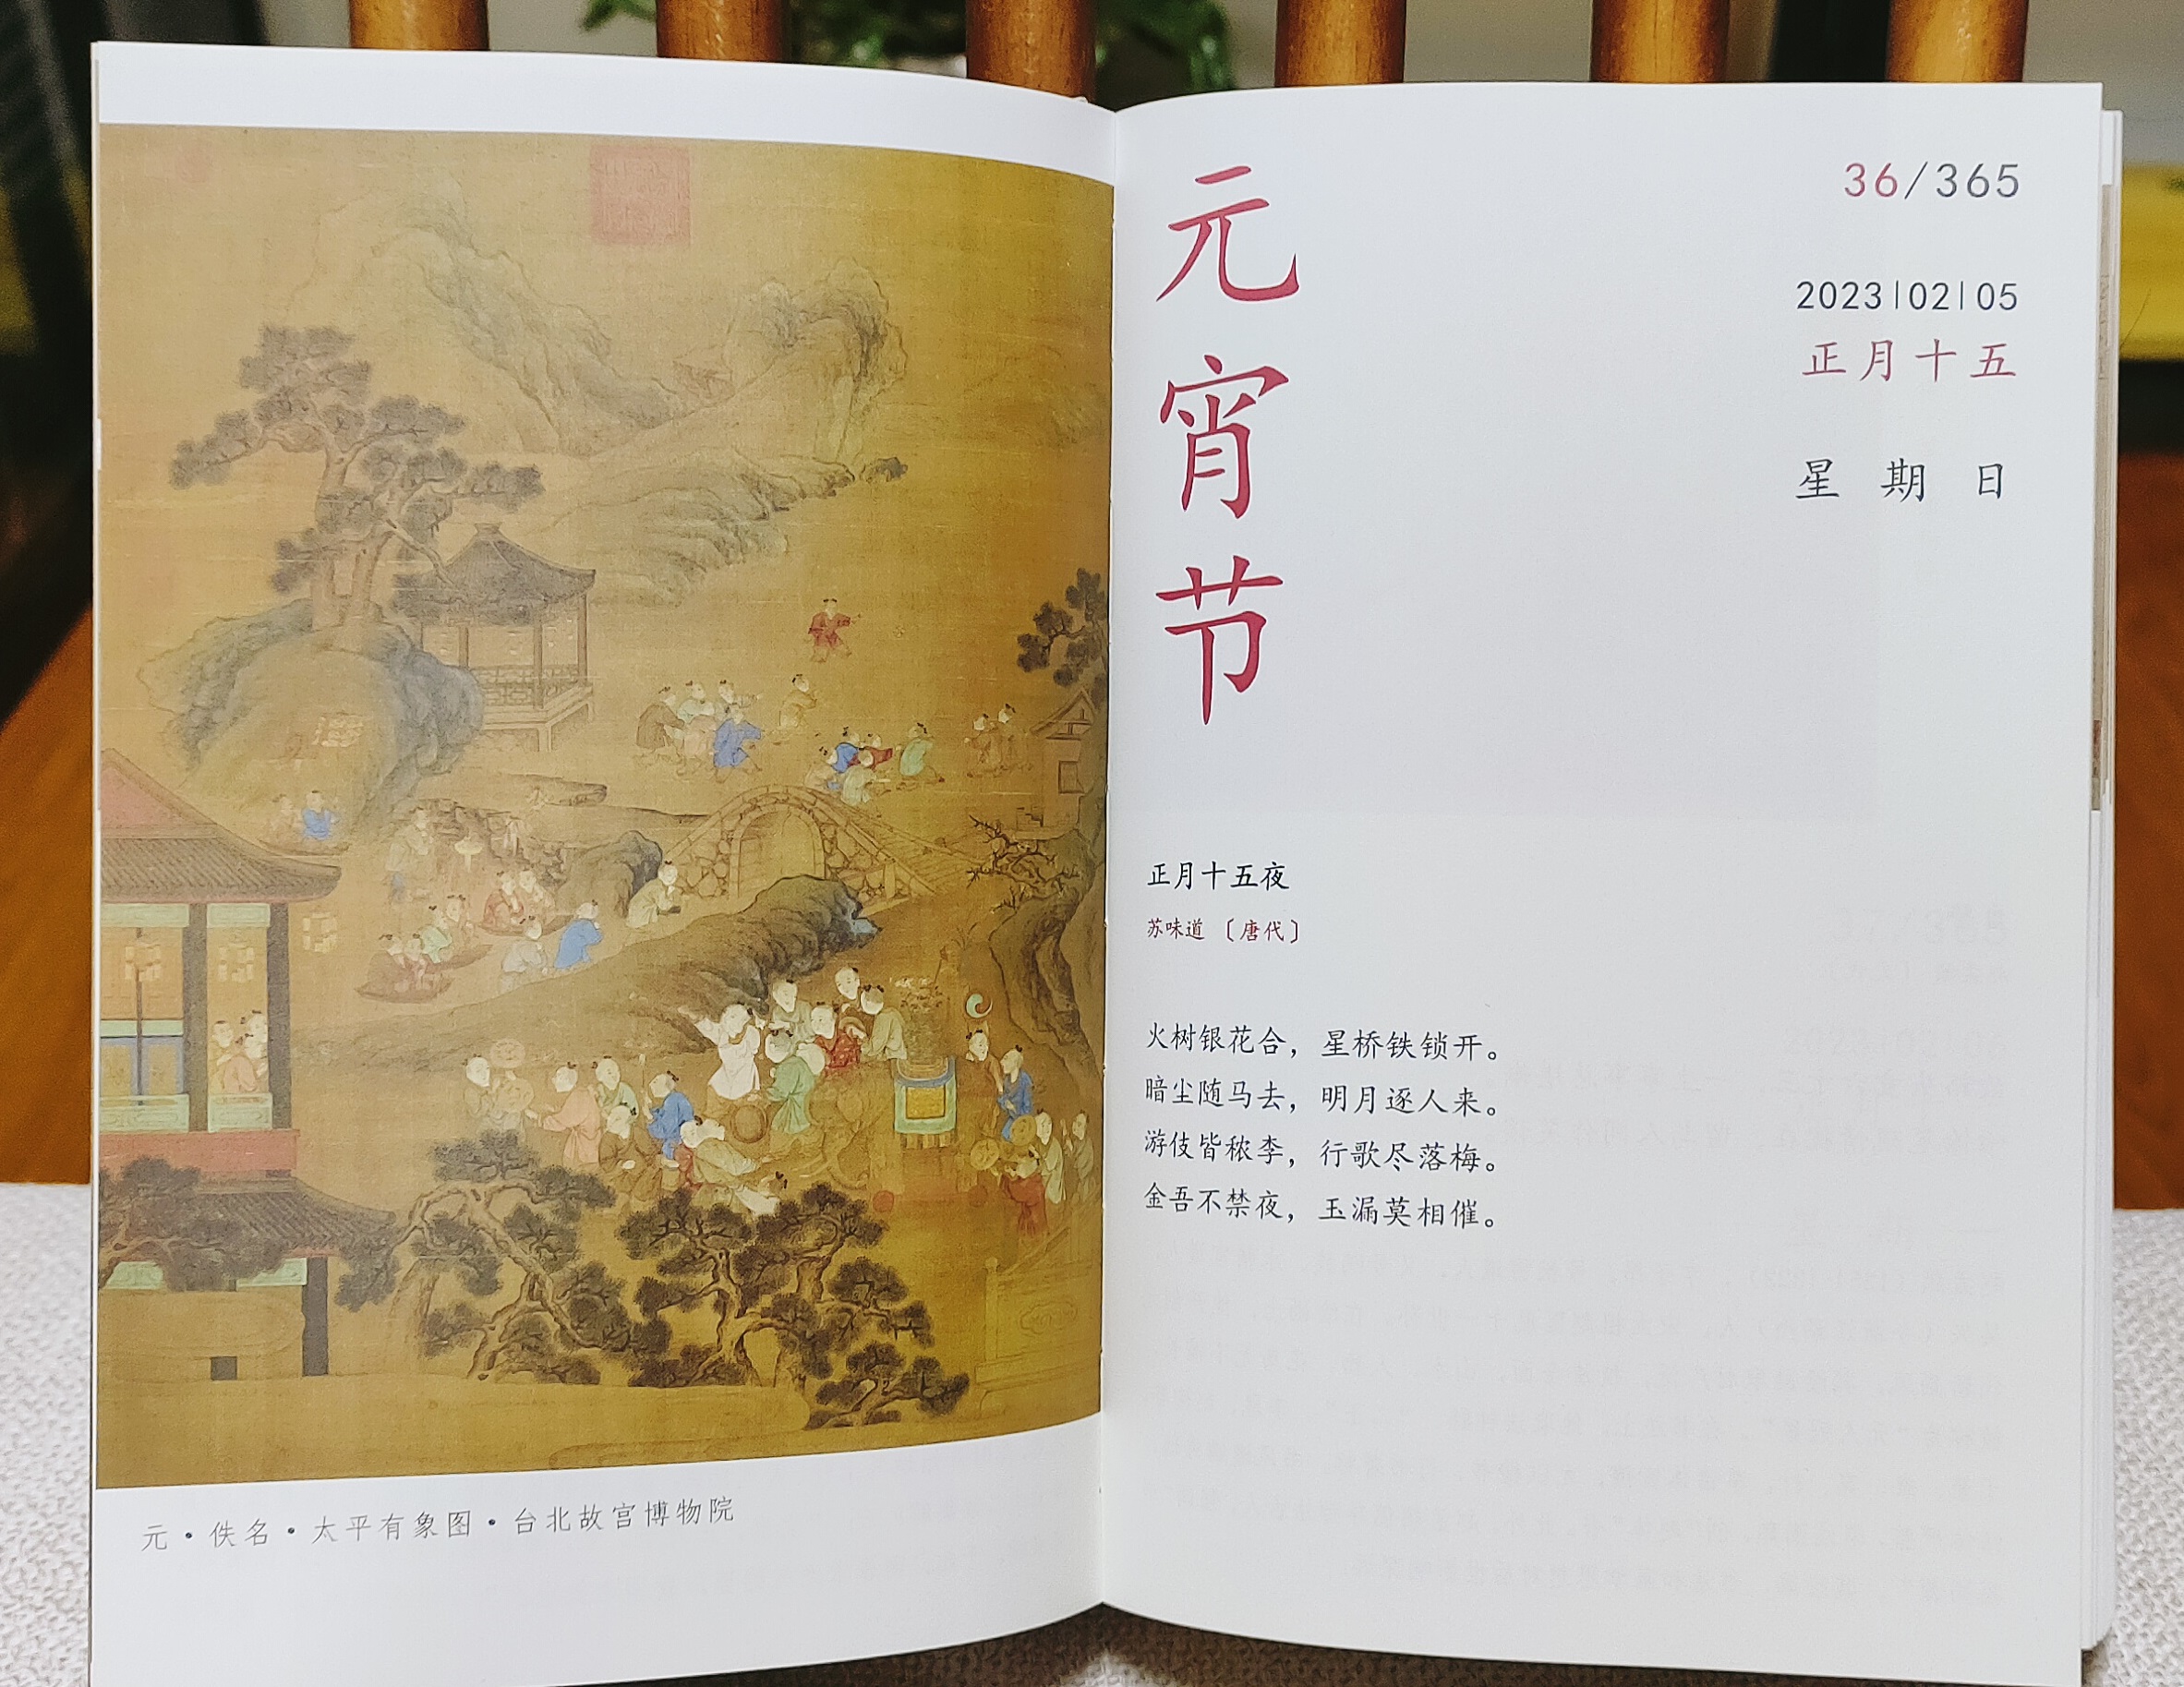 元·佚名·太平有象图·台北故宫博物院
元宵节
36/365
2023|02|05
正月十五
星期日
正月十五夜
苏味道〔唐代〕
火树银花合，星桥铁锁开。
暗尘随马去，明月逐人来。
游伎皆秾李，行歌尽落梅。
金吾不禁夜，玉漏莫相催。